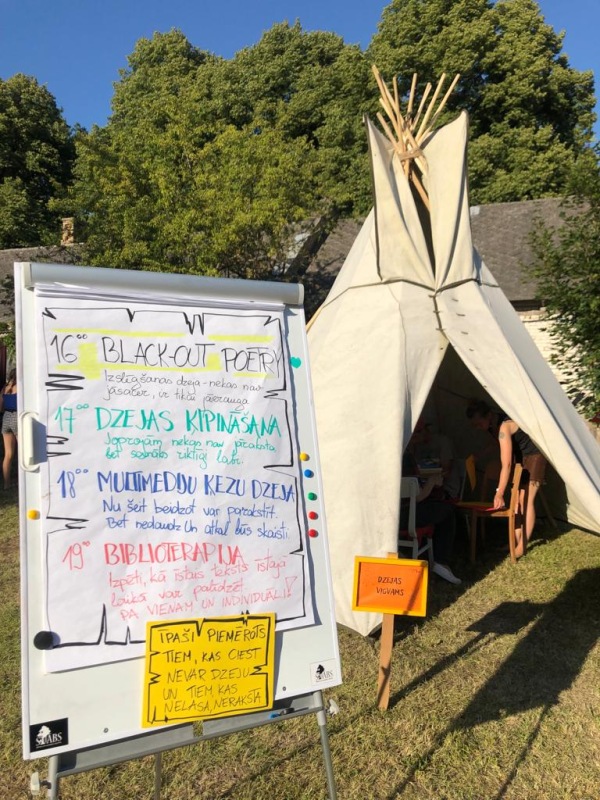 16⁰⁰ BLACK-OUT POETRY
Izslēgšanas dzeja - nekas nav
jāsacer, ir tikai jāierauga
17⁰⁰ DZEJAS ĶIPINĀŠANA
Joprojām nekas nav jāraksta
bet sanāks riktīgi labi.
18⁰⁰ MULTIMEDIJU ĶEZU DZEJA
Nu šeit beidzot var parakstīt.
Bet nedaudz. Un atkal būs skaisti.
19⁰⁰ BIBLIOTERAPIJA
Izpēti, kā īstais teksts īstajā
laikā var palīdzēt
PA VIENAM UN INDIVIDUĀLI!
ĪPAŠI PIEMĒROTS
TIEM, KAS CIEST
NEVAR DZEJU
UN TIEM, KAS
NELASA, NERAKSTA
DZEJAS
VIGVAMS
STABS